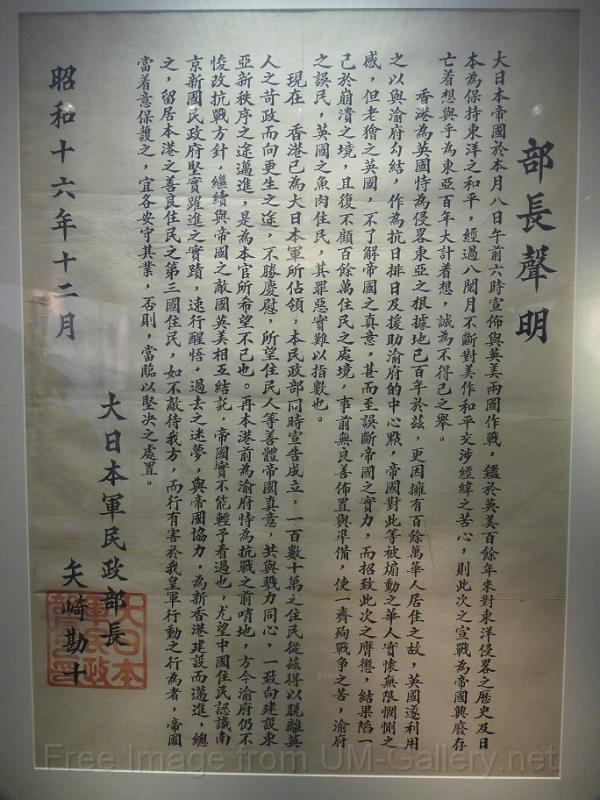 部長聲明
大日本帝國於本月八日午前六時宣佈與英美兩國作戰，鑑於英美百餘年來對東洋侵畧之歷史及日
本為保持東洋之和平，經過八閱月不斷對美作和平交涉經緯之苦心，則此次之宣戰為帝國興廢存
亡着想與乎為東亞百年大計着想，誠為不得已之舉。
香港為英國恃為侵畧東亞之根據地已百年於茲，更因擁有百餘萬華人居住之故，英國遂利用
之以與渝府勾結，作為抗日排日及援助渝府的中心點，帝國對此等被煽動之華人實懷無限憫惻之
感，但老獪之英國，不了解帝國之真意，甚而至誤斷帝國之實力，而招致此次之膺懲，結果陷一
己於崩潰之境，且復不顧百餘萬住民之處境，事前無良善佈置與準備，使一齊殉戰爭之苦，渝府
之誤民，英國之魚肉住民，其罪惡實難以指數也。
現在　香港已為大日本軍所佔領，本民政部同時宣告成立，一百數十萬之住民從茲得以脫離英
人之苛政而向更生之途，不勝慶慰，所望住民人等善體帝國真意，共與戮力同心，一致向建設東
亞新秩序之途邁進，是為本官所希望不已也。再本港前為渝府恃為抗戰之前哨地，方今渝府仍不
悛改抗戰方針，繼續與帝國之敵國英美相互結託，帝國實不能輕予看過也，尤望中國住民認識南
京新國民政府堅實躍進之實蹟，速行醒悟，過去之迷夢，與帝國協力，為新香港建設而邁進，總
之，留居本港之善良住民之第三國住民，如不敵待我方，而行有害於我皇軍行動之行為者，帝國
當着意保護之，宜各安守其業，否則，當臨以堅決之處置。
大日本軍民政部長
矢崎勘十
昭和十六年十二月
大日本
軍民政
部長印
Free Image from UM-Gallery.net